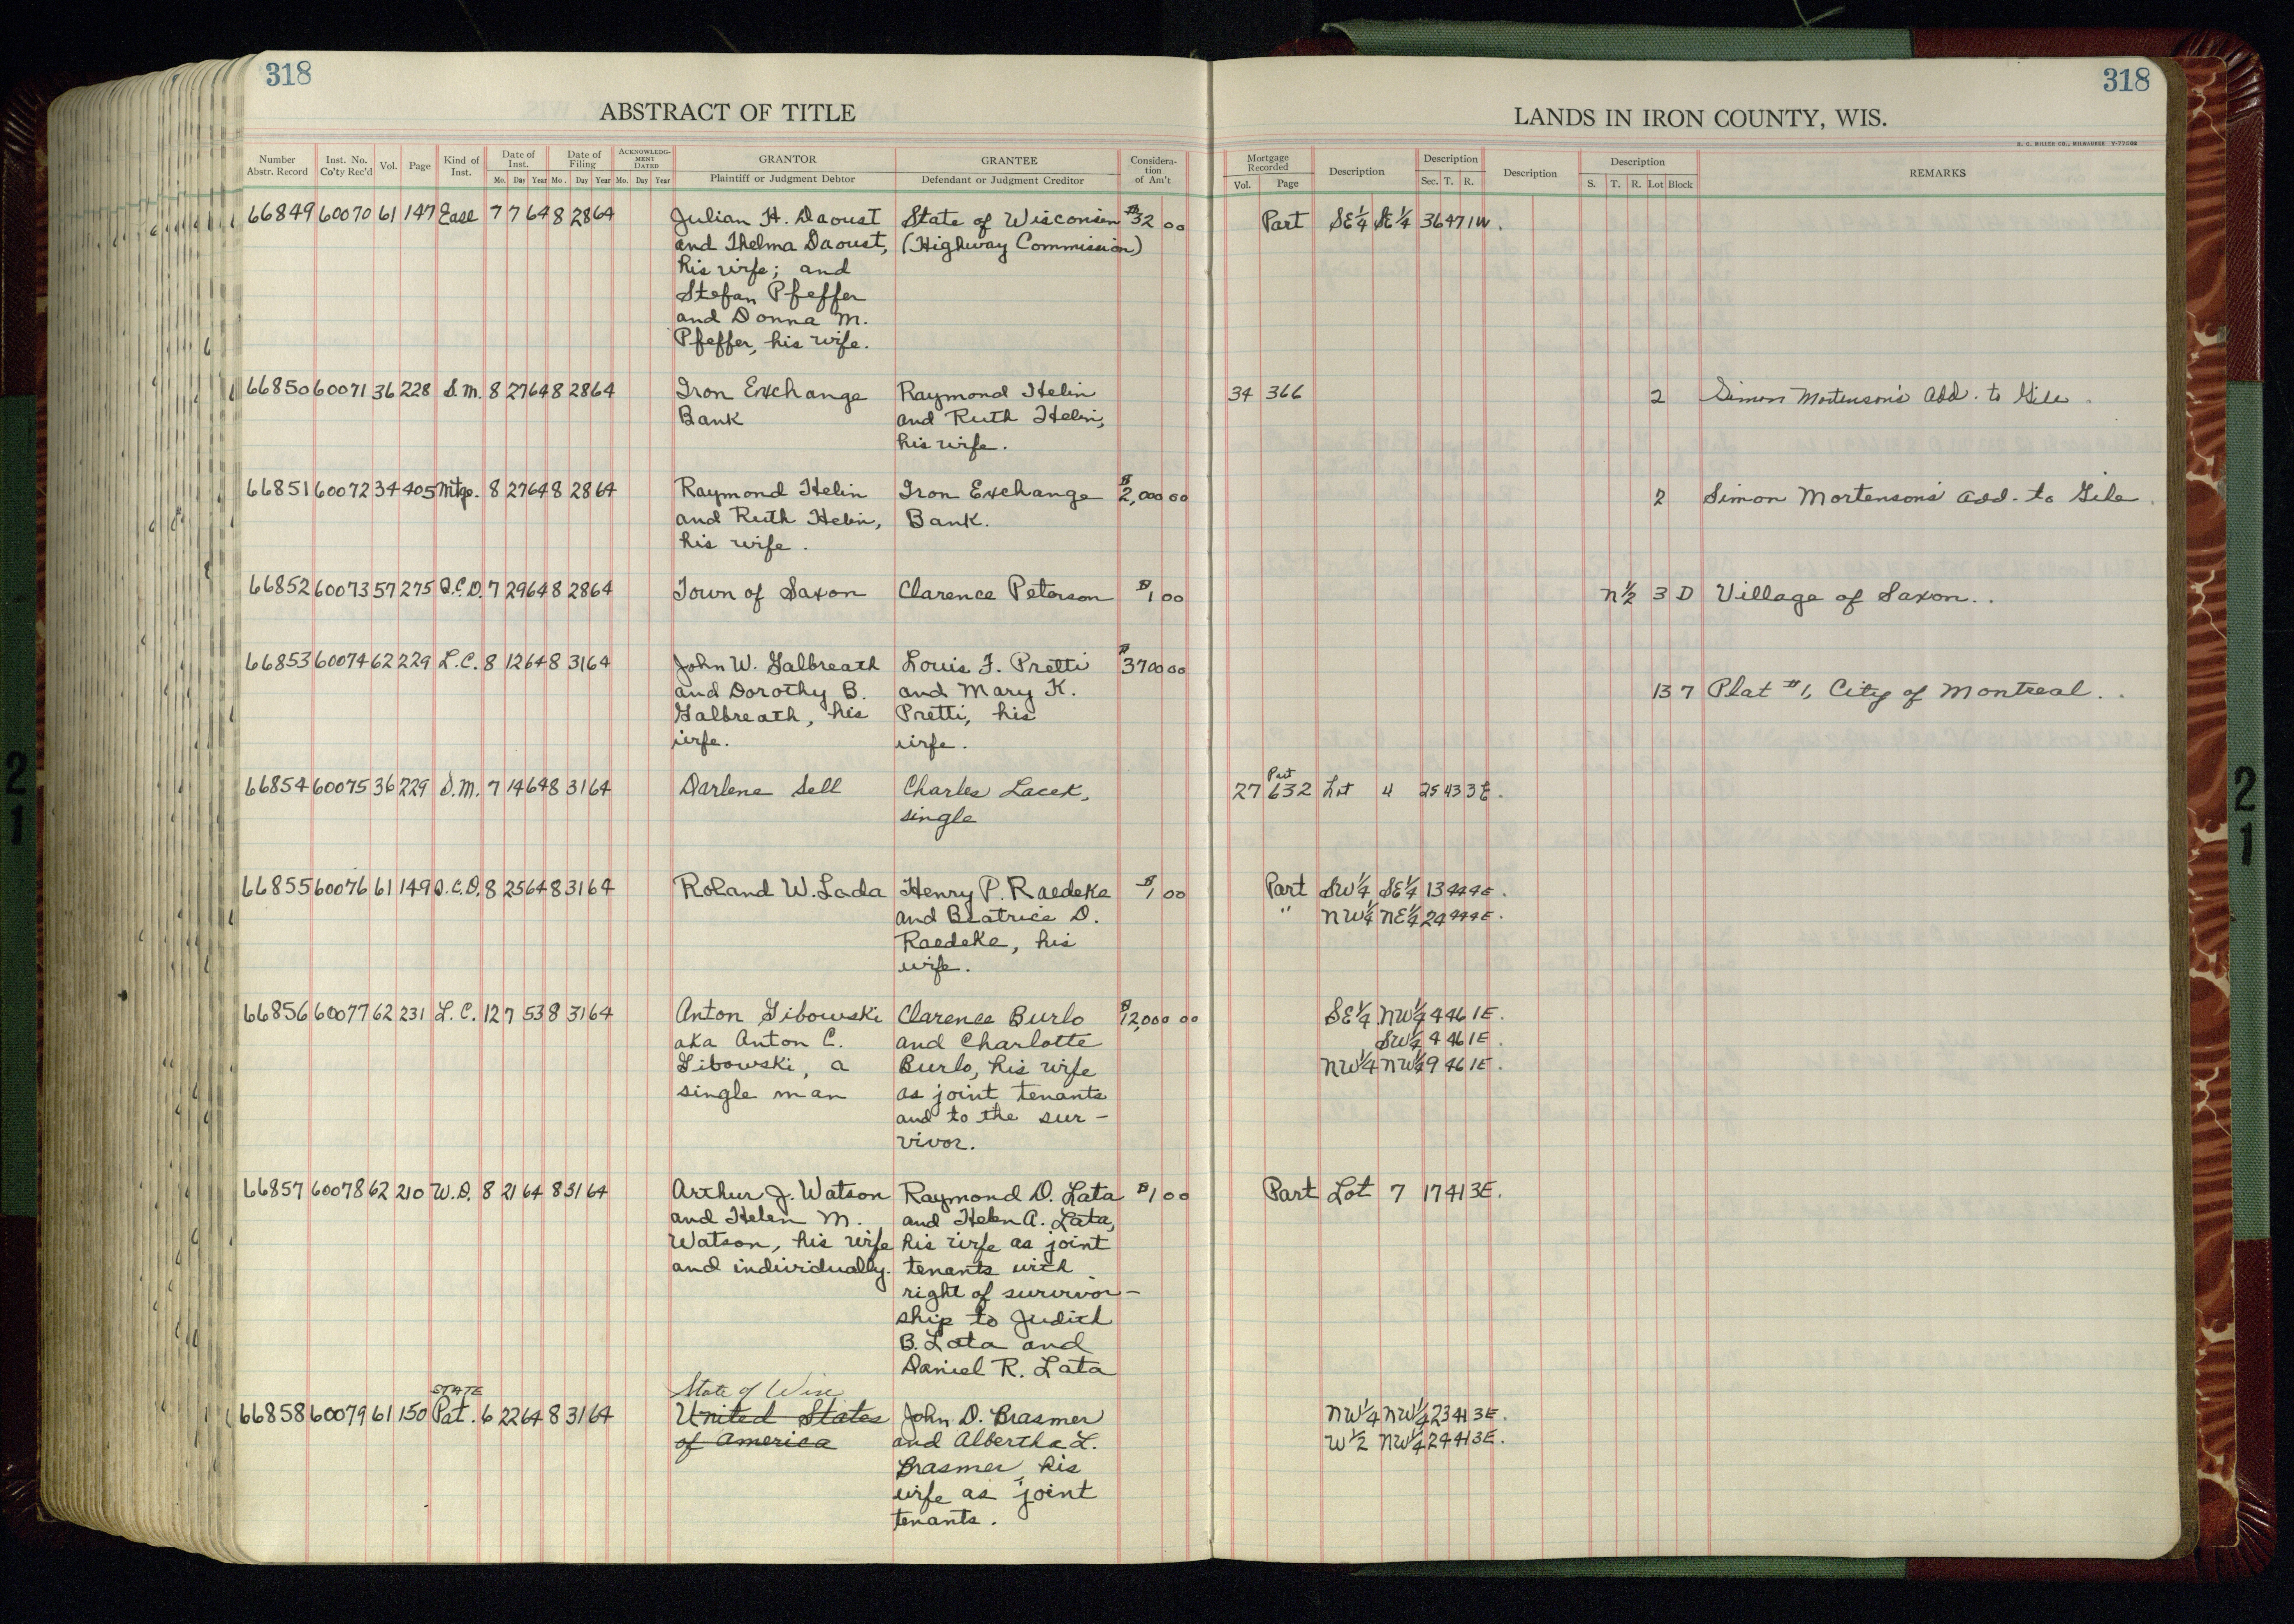 318
318
ABSTRACT OF TITLE
LANDS IN IRON COUNTY, WIS.
H. C. MILLER CO., MILWAUKEE
Number Abstr. Record Inst. No. Co'ty Rec'd Vol. Page Kind of Inst. Date of Inst. Mo. Day Year Date of Filing Mo. Day Year ACKNOWLEDG-MENT DATED Mo. Day Year GRANTOR Plaintiff or Judgment Debtor GRANTEE Defendant or Judgment Creditor Considera-tion of Am't
Mortgage Recorded Vol. Page Description Description Sec. T. R. Description Description S. T. R. Lot Block REMARKS
66849 60070 61 147 Ease 7 7 64 8 28 64 Julian H. Daoust State of Wisconsin $32 00 Part SE1/4 SE1/4 36 47 1W.
and Thelma Daoust, (Highway Commission)
his wife; and
Stefan Pfeffer
and Donna M.
Pfeffer, his wife.
66850 60071 36 228 S.M. 8 27 64 8 28 64 Iron Exchange Raymond Helin 34 366 2 Simon Mortenson's Add. to Gile.
Bank and Ruth Helin,
his wife.
66851 60072 34 405 Mtge. 8 27 64 8 28 64 Raymond Helin Iron Exchange $2,000 00 2 Simon Mortenson's Add. to Gile.
and Ruth Helin, Bank.
his wife.
66852 60073 57 275 Q.C.D. 7 29 64 8 28 64 Town of Saxon Clarence Peterson $1 00 N1/2 3 D Village of Saxon..
66853 60074 62 229 L.C. 8 12 64 8 31 64 John W. Galbreath Louis F. Pretti $3700 00
and Dorothy B. and Mary K. 13 7 Plat #1, City of Montreal..
Galbreath, his Pretti, his
wife. wife.
66854 60075 36 229 S.M. 7 14 64 8 31 64 Darlene Sell Charles Lacek, 27 632 Part Lot 4 25 43 3E.
single
66855 60076 61 149 Q.C.D. 8 25 64 8 31 64 Roland W. Lada Henry P. Raedeke $1 00 Part SW1/4 SE1/4 13 44 4E.
and Beatrice D. " NW1/4 NE1/4 24 44 4E.
Raedeke, his
wife.
66856 60077 62 231 L.C. 12 7 53 8 31 64 Anton Gibowski Clarence Burlo $12,000 00 SE1/4 NW1/4 4 46 1E.
aka Anton C. and Charlotte SW1/4 4 46 1E.
Gibowski, a Burlo, his wife NW1/4 NW1/4 9 46 1E.
single man as joint tenants
and to the sur-
vivor.
66857 60078 62 210 W.D. 8 21 64 8 31 64 Arthur J. Watson Raymond D. Lata $1 00 Part Lot 7 17 41 3E.
and Helen M. and Helen A. Lata,
Watson, his wife his wife as joint
and individually. tenants with
right of survivor-
ship to Judith
B. Lata and
Daniel R. Lata
STATE State of Wisc
66858 60079 61 150 Pat. 6 22 64 8 31 64 United States John D. Brasmer NW1/4 NW1/4 23 41 3E.
of America and Albertha L. W1/2 NW1/4 24 41 3E.
Brasmer, his
wife as joint
tenants.
21
21